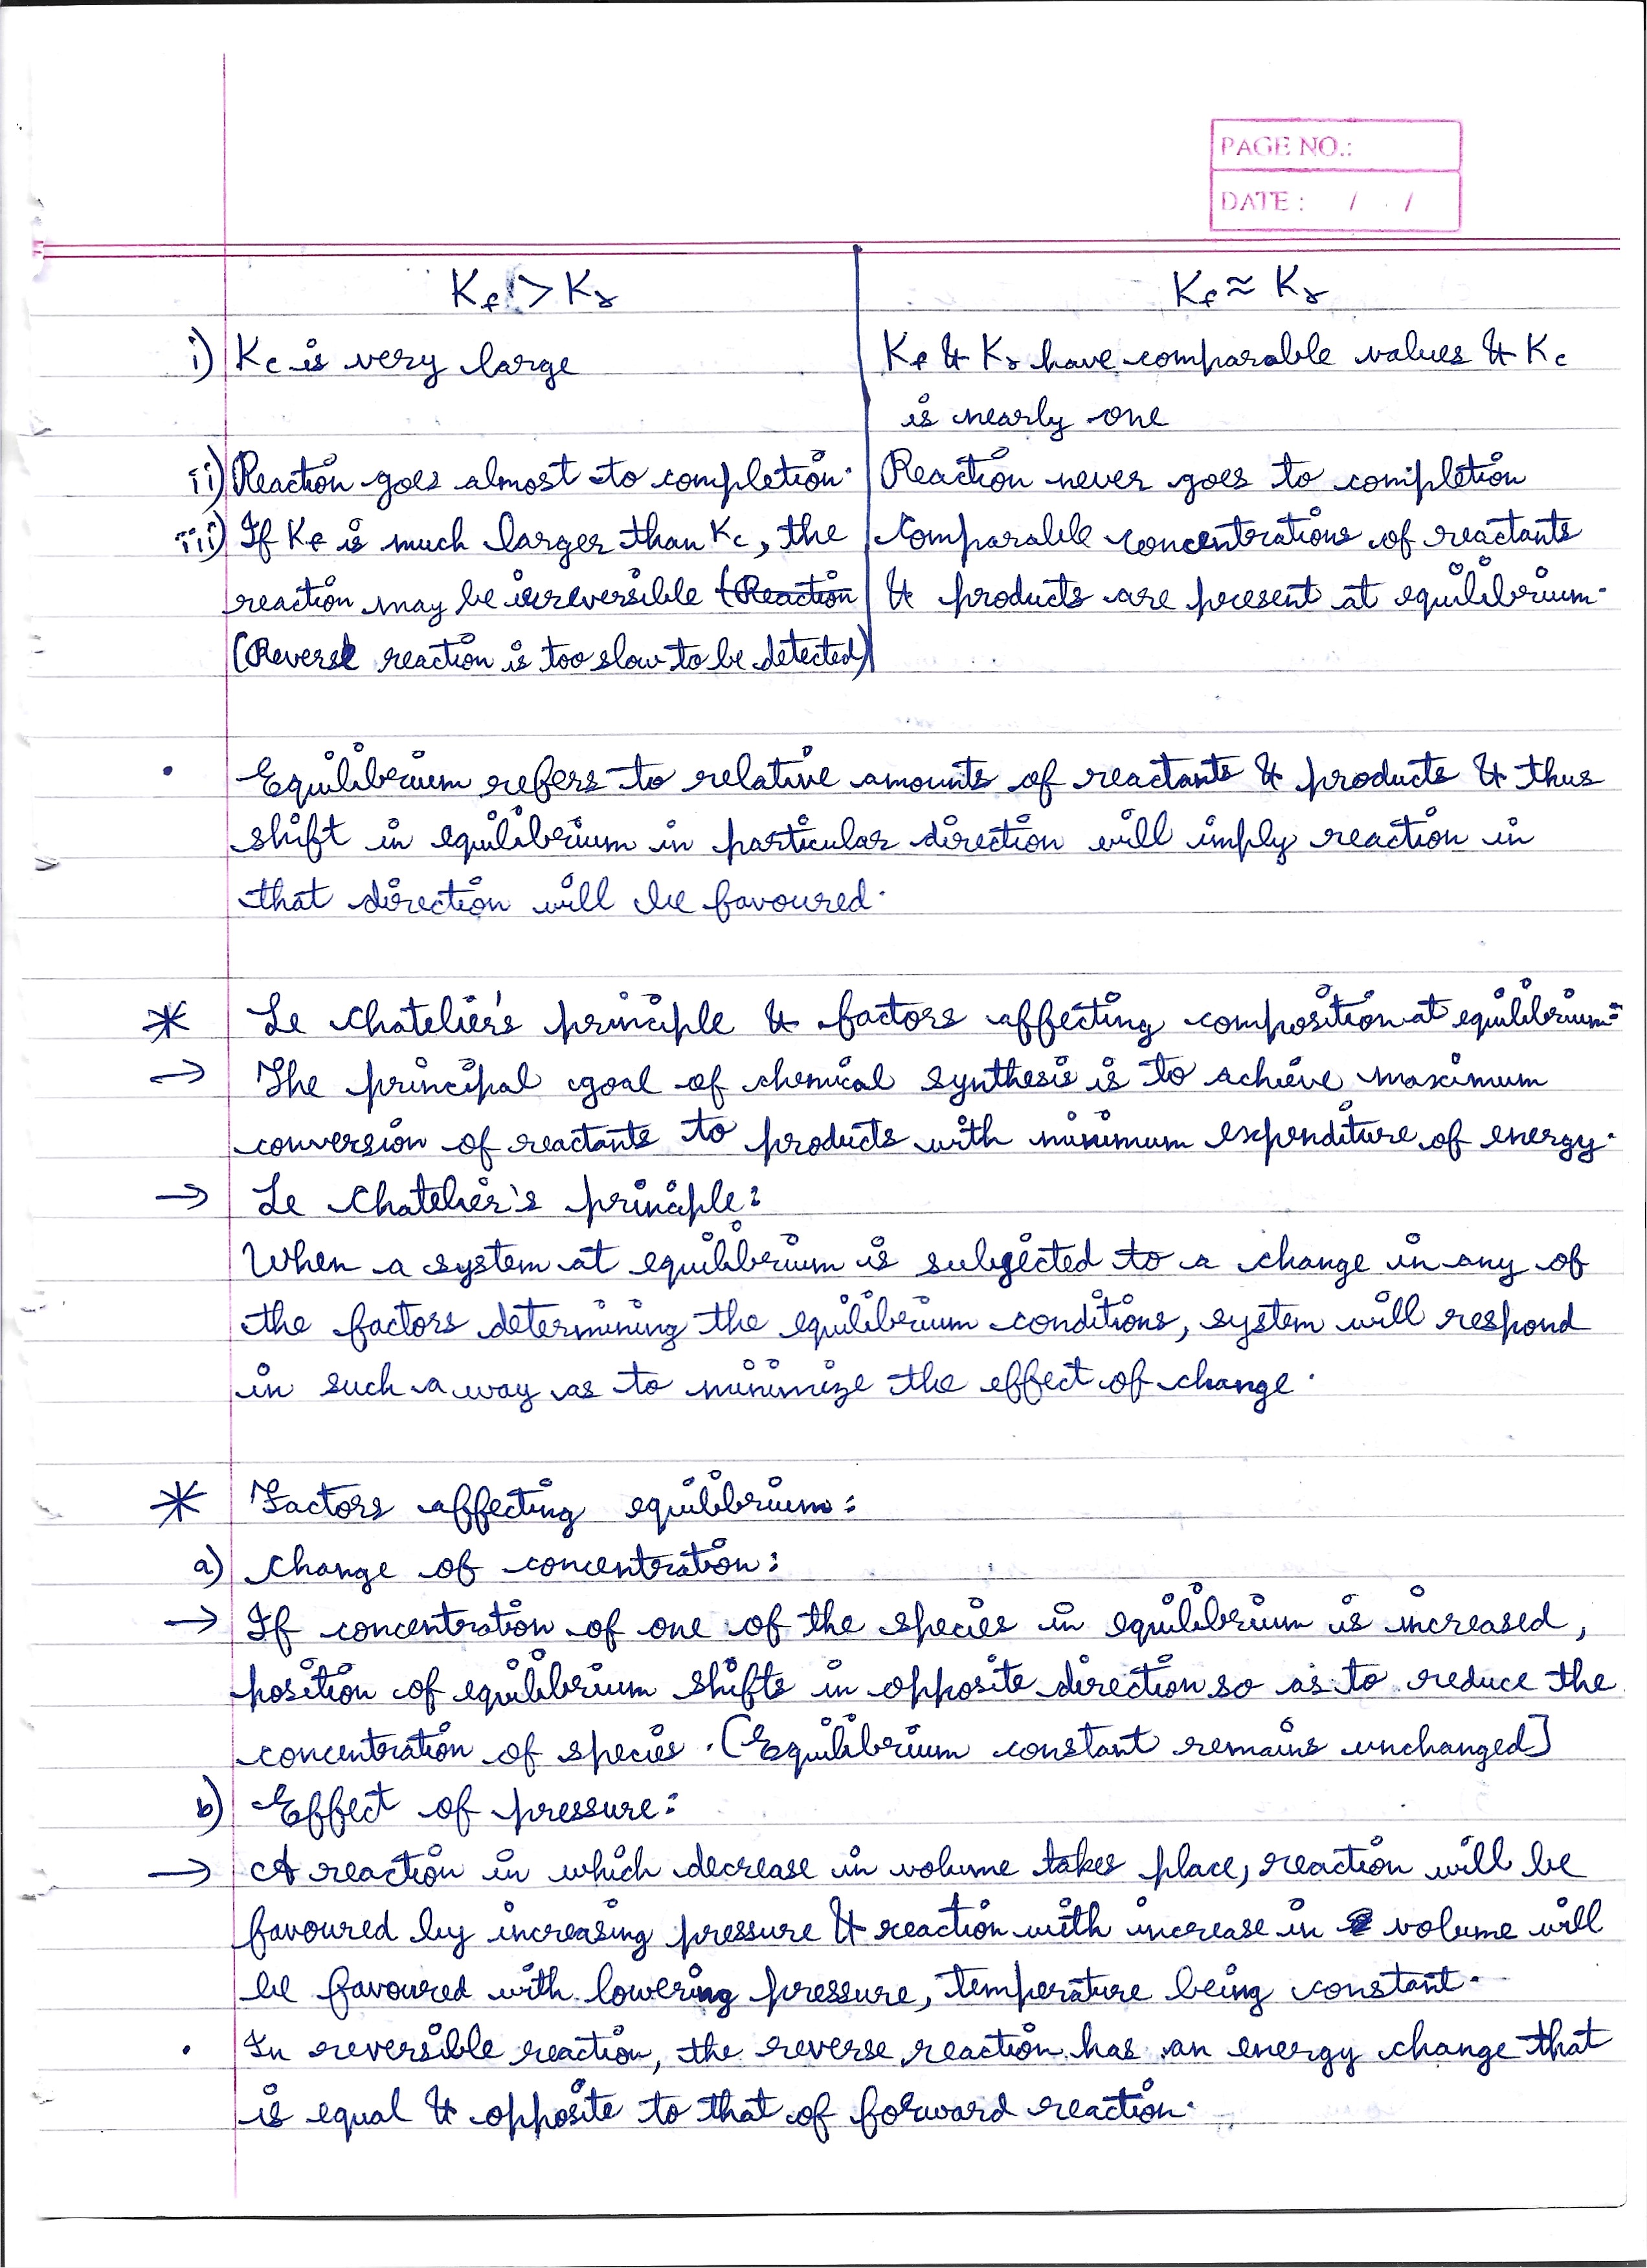 PAGE NO.:
DATE : / /
Kf > Kr
Kf ≈ Kr
i) Kc is very large
Kf & Kr have comparable values & Kc
is nearly one
ii) Reaction goes almost to completion.
Reaction never goes to completion
iii) If Kf is much larger than Kc, the
reaction may be irreversible (Reaction
(Reverse reaction is too slow to be detected)
Comparable concentrations of reactants
& products are present at equilibrium.
• Equilibrium refers to relative amounts of reactants & products & thus
shift in equilibrium in particular direction will imply reaction in
that direction will be favoured.
* Le Chatelier's principle & factors affecting composition at equilibrium:
→ The principal goal of chemical synthesis is to achieve maximum
conversion of reactants to products with minimum expenditure of energy.
→ Le Chatelier's principle:
When a system at equilibrium is subjected to a change in any of
the factors determining the equilibrium conditions, system will respond
in such a way as to minimize the effect of change.
* Factors affecting equilibrium:
a) Change of concentration:
→ If concentration of one of the species in equilibrium is increased,
position of equilibrium shifts in opposite direction so as to reduce the
concentration of species. [Equilibrium constant remains unchanged]
b) Effect of pressure:
→ A reaction in which decrease in volume takes place, reaction will be
favoured by increasing pressure & reaction with increase in volume will
be favoured with lowering pressure, temperature being constant.
• In reversible reaction, the reverse reaction has an energy change that
is equal & opposite to that of forward reaction.